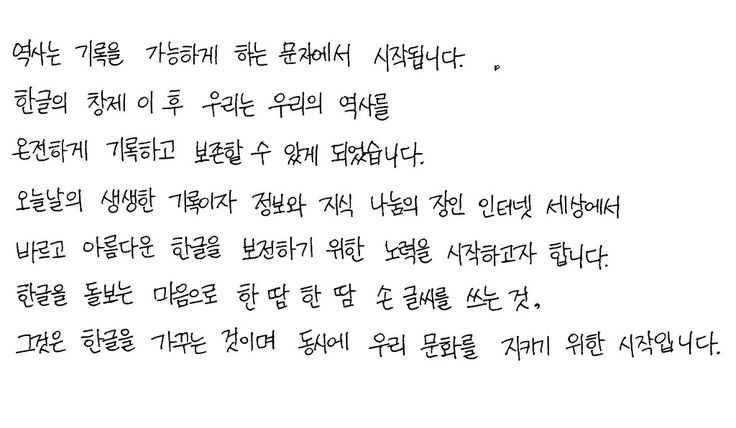 역사는 기록을 가능하게 하는 문자에서 시작됩니다.
한글의 창제 이 후 우리는 우리의 역사를
온전하게 기록하고 보존할 수 있게 되었습니다.
오늘날의 생생한 기록이자 정보와 지식 나눔의 장인 인터넷 세상에서
바르고 아름다운 한글을 보전하기 위한 노력을 시작하고자 합니다.
한글을 돌보는 마음으로 한 땀 한 땀 손 글씨를 쓰는 것,
그것은 한글을 가꾸는 것이며 동시에 우리 문화를 지키기 위한 시작입니다.